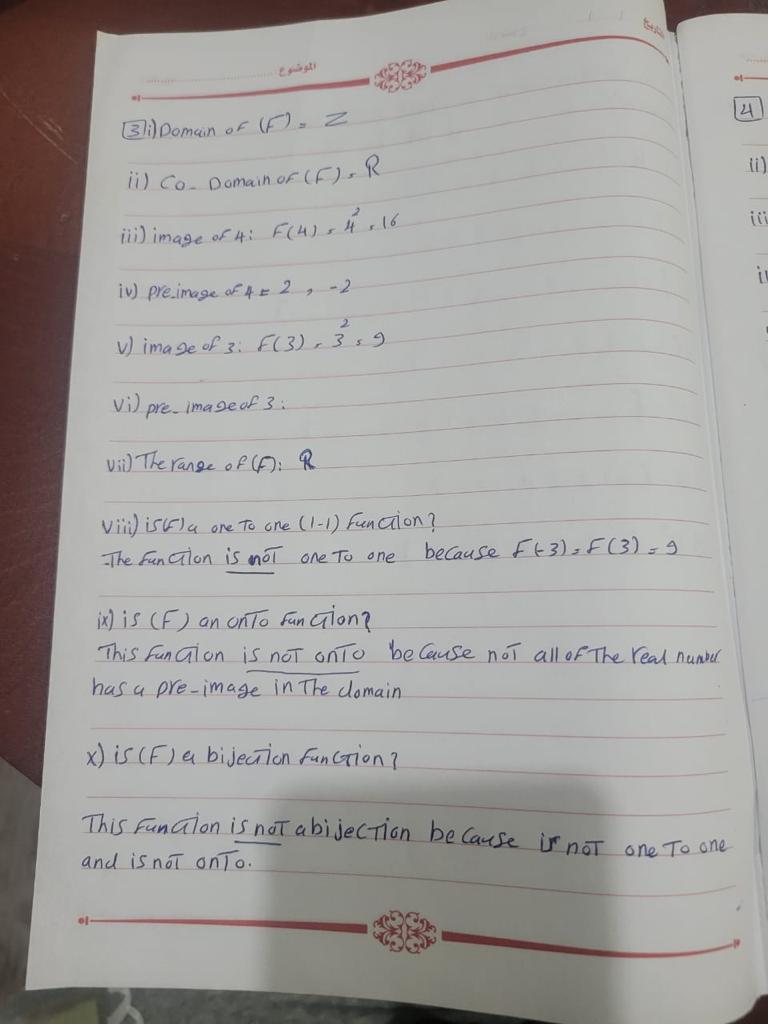 الموضوع
التاريخ
3 i) Domain of (F) = Z
ii) Co-Domain of (F) = R
iii) image of 4: F(4) = 4² = 16
iv) pre-image of 4 = 2 , -2
v) image of 3: F(3) = 3² = 9
vi) pre-image of 3:
vii) The range of (F): R
viii) is (F) a one To one (1-1) function?
The function is not one To one because F(-3) = F(3) = 9
ix) is (F) an onTo function?
This function is not onto because not all of The real number
has a pre-image in The domain
x) is (F) a bijection function?
This function is not a bijection because is not one To one
and is not onTo.
4
ii)
iii